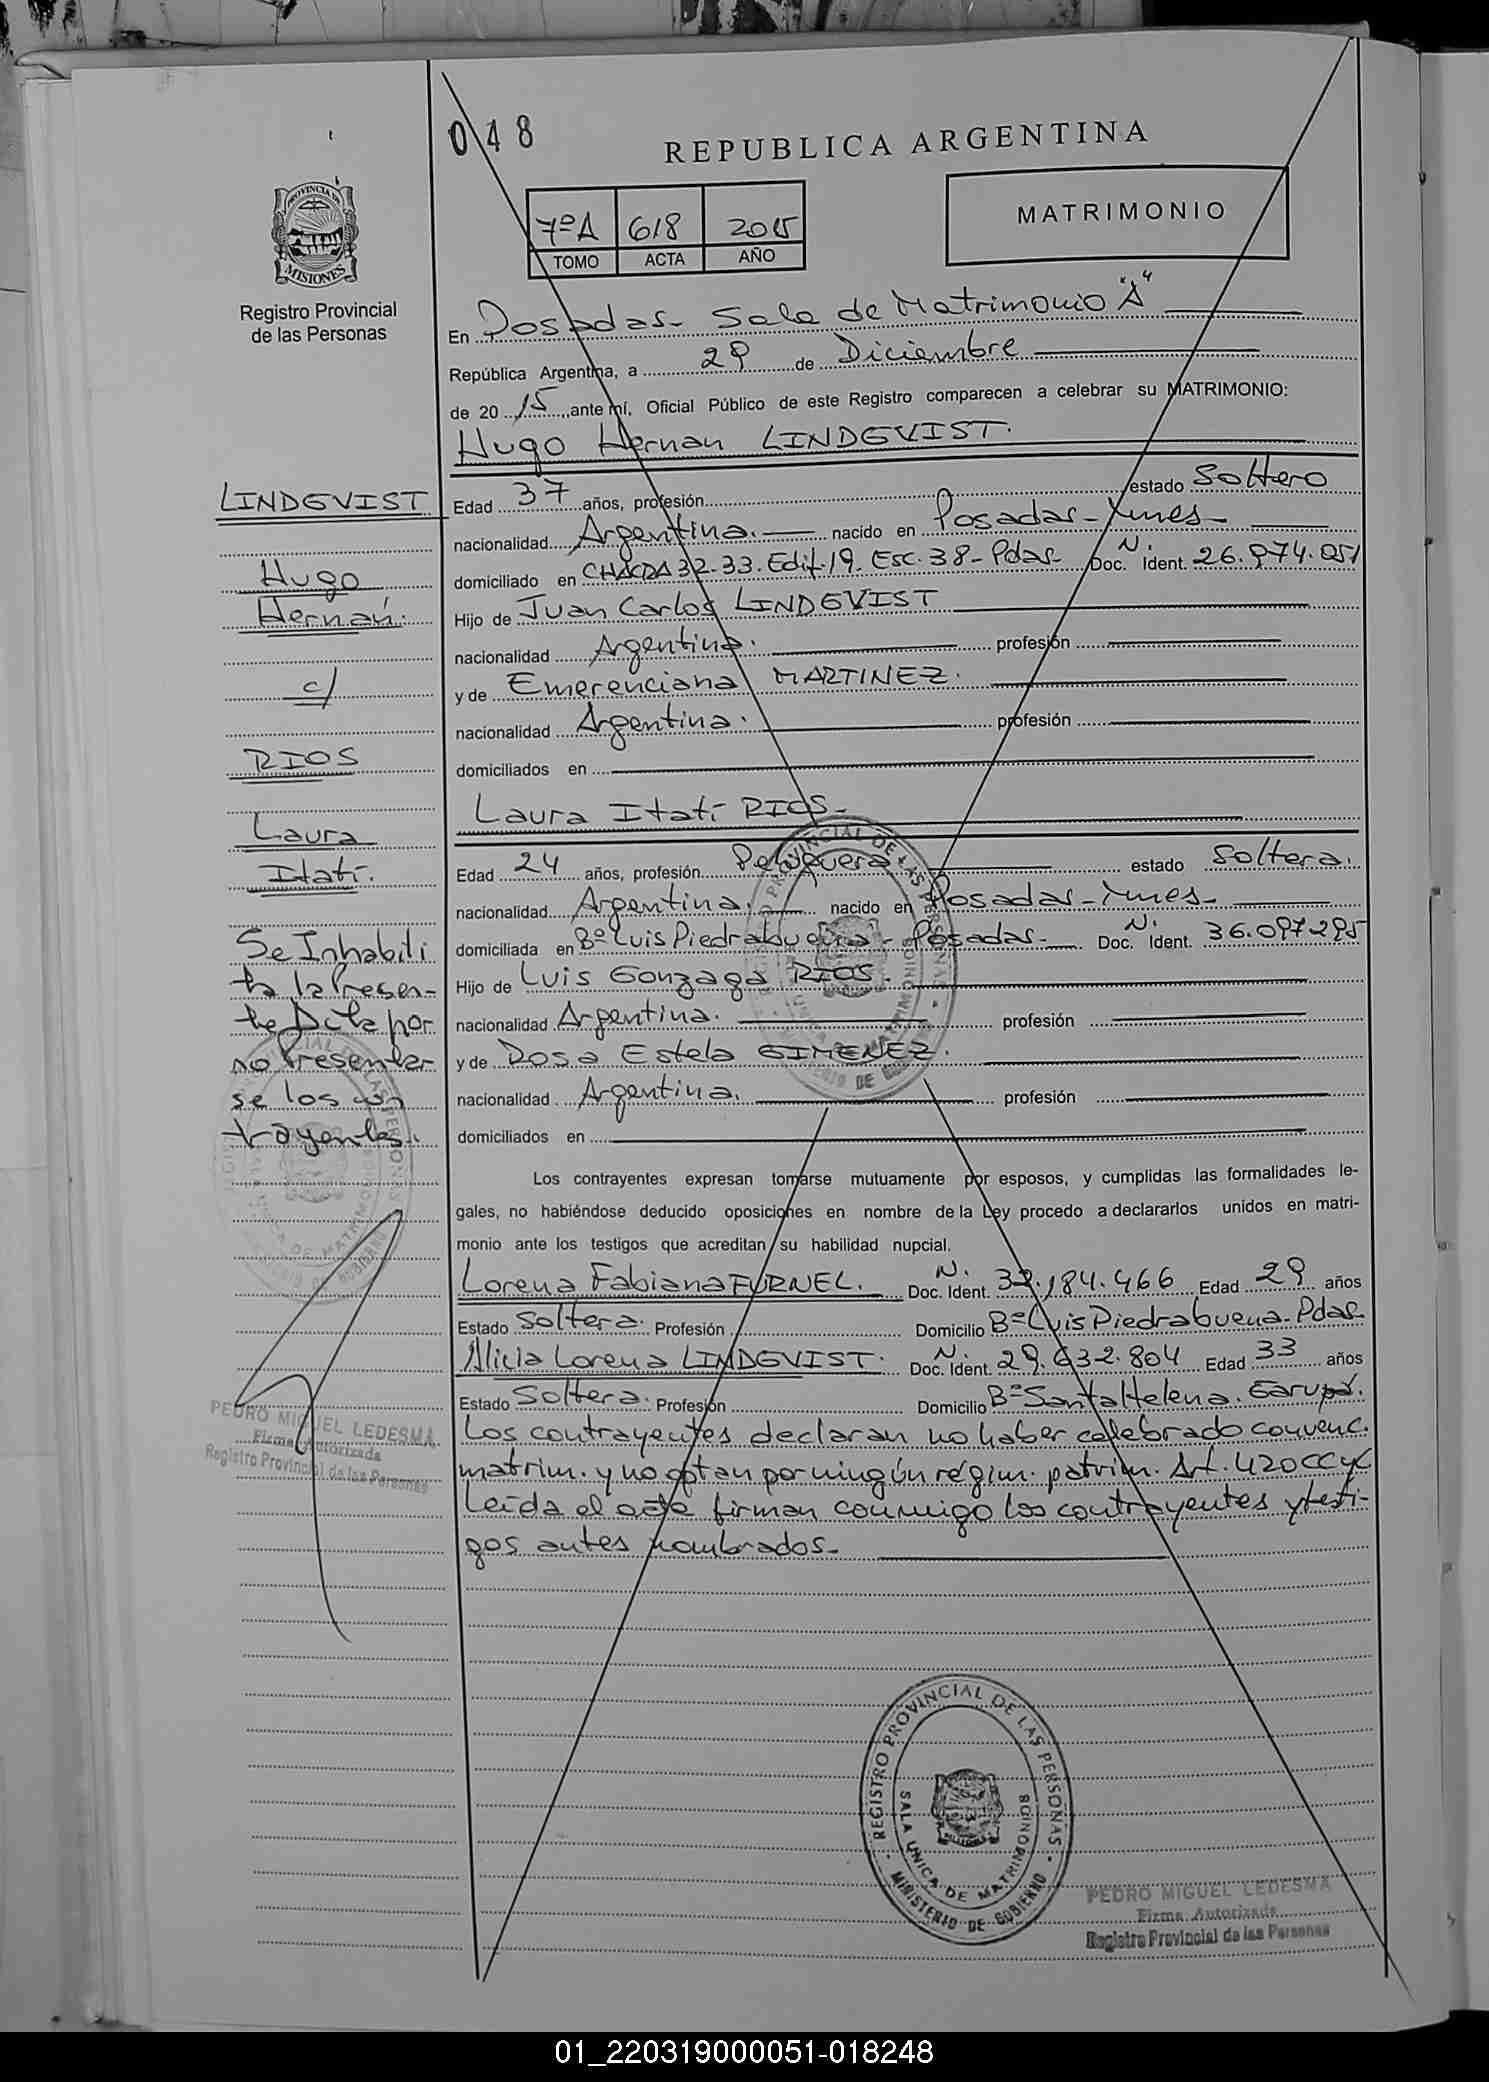 048
REPUBLICA ARGENTINA
PROVINCIA DE
MISIONES
Registro Provincial
de las Personas
7ºA 618 2015
TOMO ACTA AÑO
MATRIMONIO
En Posadas- Sala de Matrimonio "A"
República Argentina, a 29 de Diciembre
de 20 15 ,ante mí, Oficial Público de este Registro comparecen a celebrar su MATRIMONIO:
Hugo Hernan LINDGVIST.
Edad 37 años, profesión estado Soltero
nacionalidad Argentina. nacido en Posadas-Mnes-
domiciliado en CHACRA 32-33. Edif.19. Esc. 38- Pdas- Doc. Ident. N. 26.974.051
Hijo de Juan Carlos LINDGVIST
nacionalidad Argentina. profesión
y de Emerenciana MARTINEZ.
nacionalidad Argentina. profesión
domiciliados en
Laura Itatí RIOS-
Edad 24 años, profesión Peluquera estado Soltera.
nacionalidad Argentina. nacido en Posadas-Mnes-
domiciliada en Bº Luis Piedrabuena- Posadas- Doc. Ident. N. 36.097.295
Hijo de Luis Gonzaga RIOS.
nacionalidad Argentina. profesión
y de Rosa Estela GIMENEZ.
nacionalidad Argentina. profesión
domiciliados en
Los contrayentes expresan tomarse mutuamente por esposos, y cumplidas las formalidades le-
gales, no habiéndose deducido oposiciones en nombre de la Ley procedo a declararlos unidos en matri-
monio ante los testigos que acreditan su habilidad nupcial.
Lorena Fabiana FURNEL. Doc. Ident. N. 32.184.466 Edad 29 años
Estado Soltera. Profesión Domicilio Bº Luis Piedrabuena-Pdas-
Alicia Lorena LINDGVIST. Doc. Ident. N. 29.632.804 Edad 33 años
Estado Soltera. Profesión Domicilio Bº Santa Helena. Garupá.
Los contrayentes declaran no haber celebrado convenc.
matrim. y no optan por ningún régim. patrim. Art. 420 CCyC
Leída el acta firman conmigo los contrayentes y testi-
gos antes nombrados-
LINDGVIST
Hugo
Hernán.
c/
RIOS
Laura
Itatí.
Se Inhabili
ta la Presen-
te Acta por
no Presentar
se los con
trayentes.
PEDRO MIGUEL LEDESMA
Firma Autorizada
Registro Provincial de las Personas
REGISTRO PROVINCIAL DE LAS PERSONAS
SALA UNICA DE MATRIMONIOS
MINISTERIO DE GOBIERNO
PEDRO MIGUEL LEDESMA
Firma Autorizada
Registro Provincial de las Personas
01_220319000051-018248